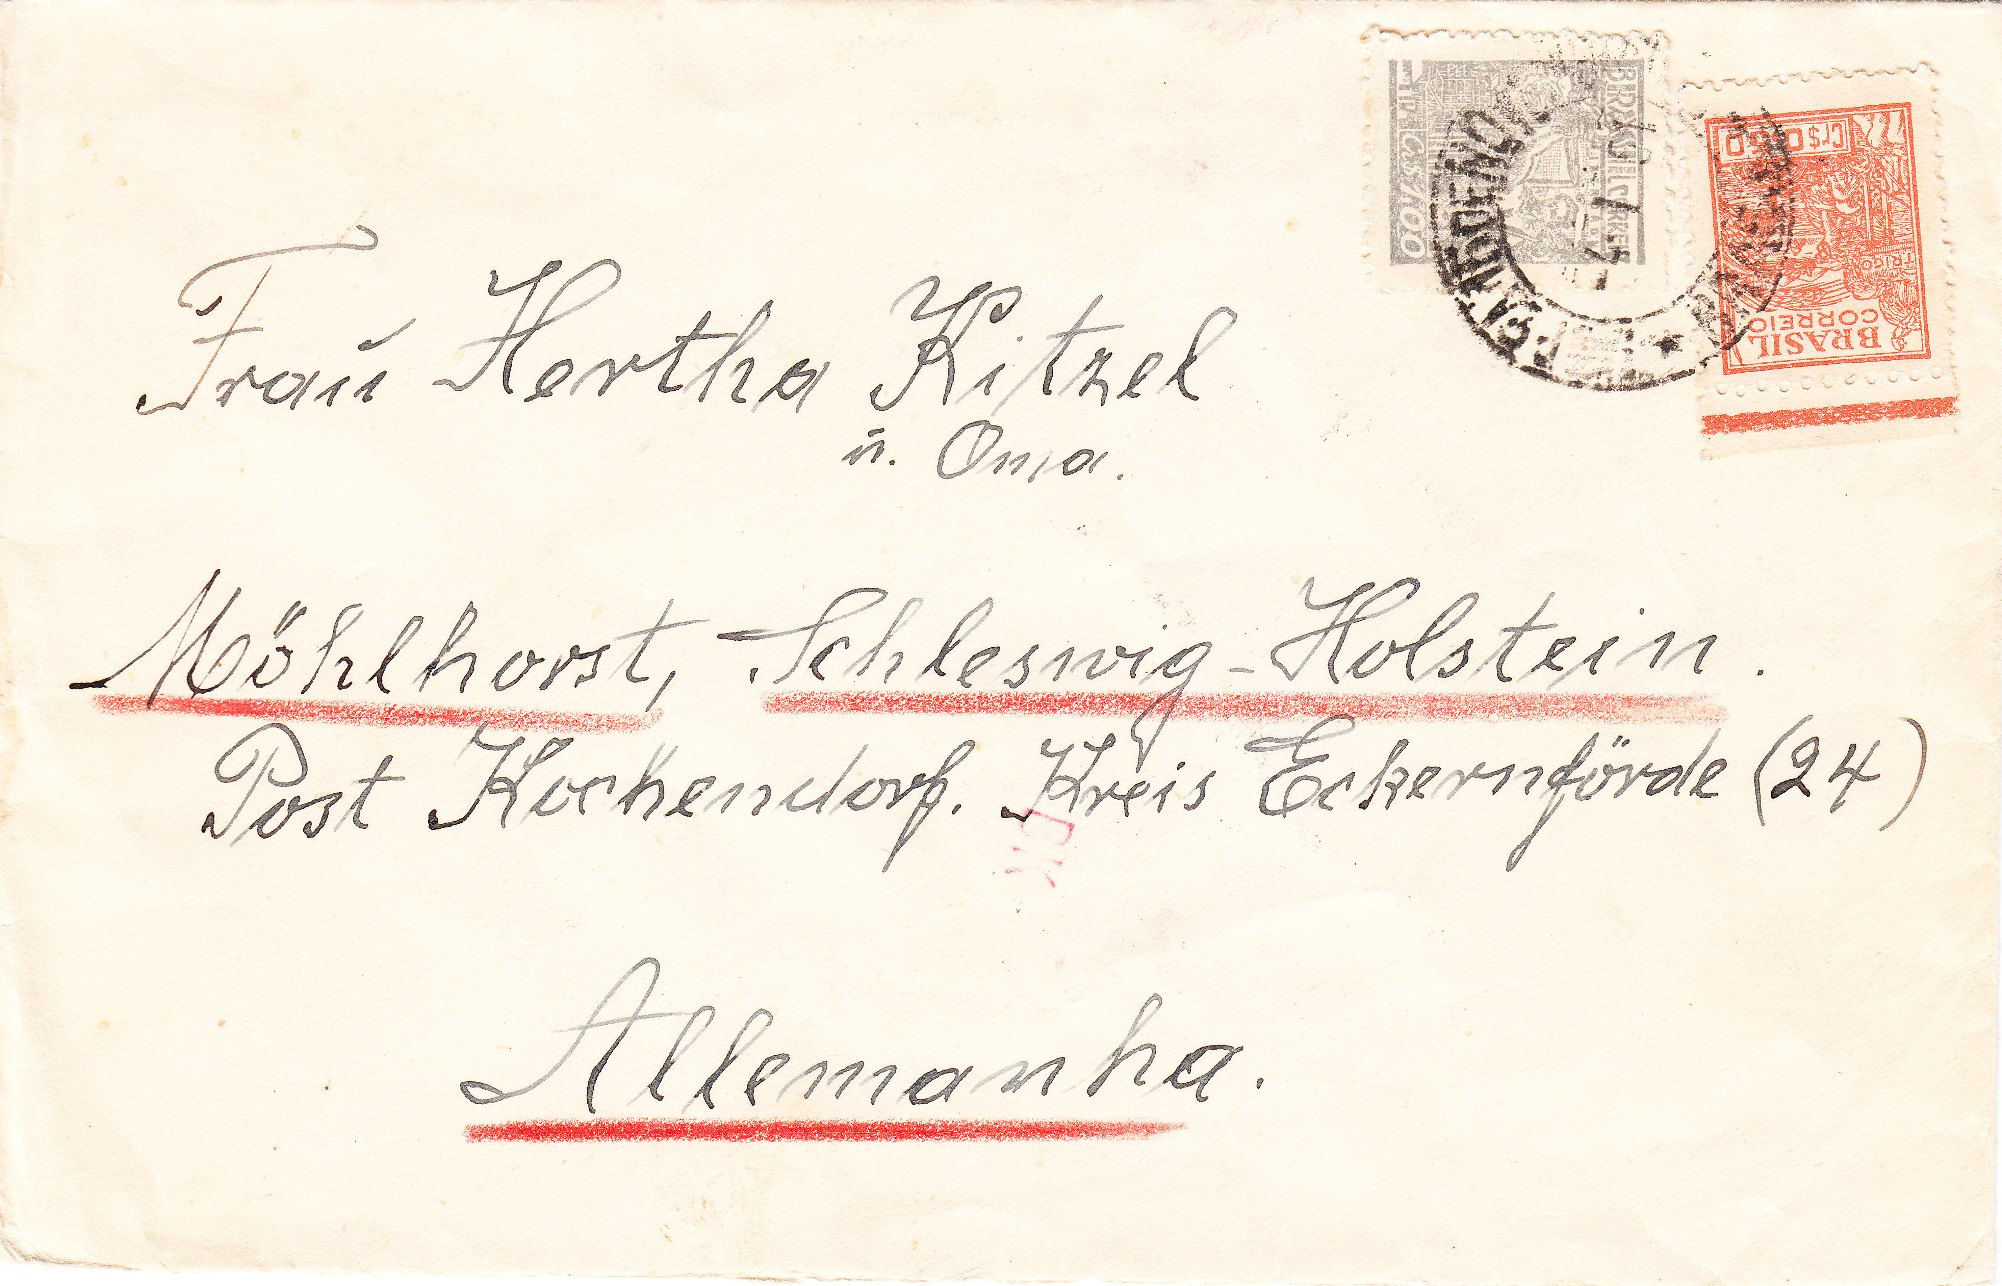 BRASIL CORREIO
Cr$ 1,00
BRASIL
CORREIO
TRIGO
Cr$ 0,20
Frau Hertha Kitzel
u. Oma.
Möhlhorst, Schleswig-Holstein.
Post Kochendorf. Kreis Eckernförde (24)
Allemanha.